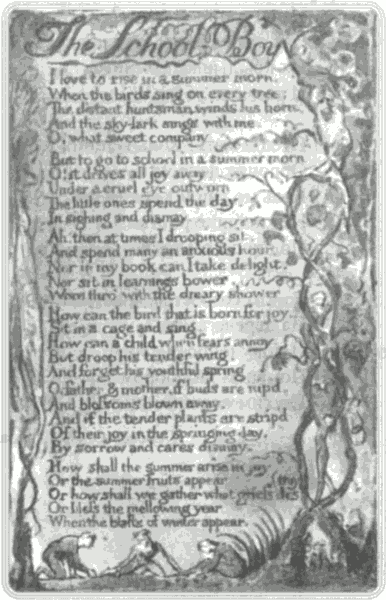 The School-Boy
I love to rise in a summer morn.
When the birds sing on every tree;
The distant huntsman winds his horn.
And the sky-lark sings with me
O, what sweet company
But to go to school in a summer morn
O! it drives all joy away
Under a cruel eye outworn
The little ones spend the day.
In sighing and dismay
Ah then at times I drooping sit
And spend many an anxious hour,
Nor in my book can I take delight,
Nor sit in learnings bower
Worn thro' with the dreary shower
How can the bird that is born for joy,
Sit in a cage and sing.
How can a child when fears annoy
But droop his tender wing.
And forget his youthful spring
O, father & mother, if buds are nip'd
And blossoms blown away,
And if the tender plants are strip'd
Of their joy in the springing day,
By sorrow and cares dismay,
How shall the summer arise in joy
Or the summer fruits appear
Or how shall we gather what griefs des
Or bless the mellowing year
When the blasts of winter appear.